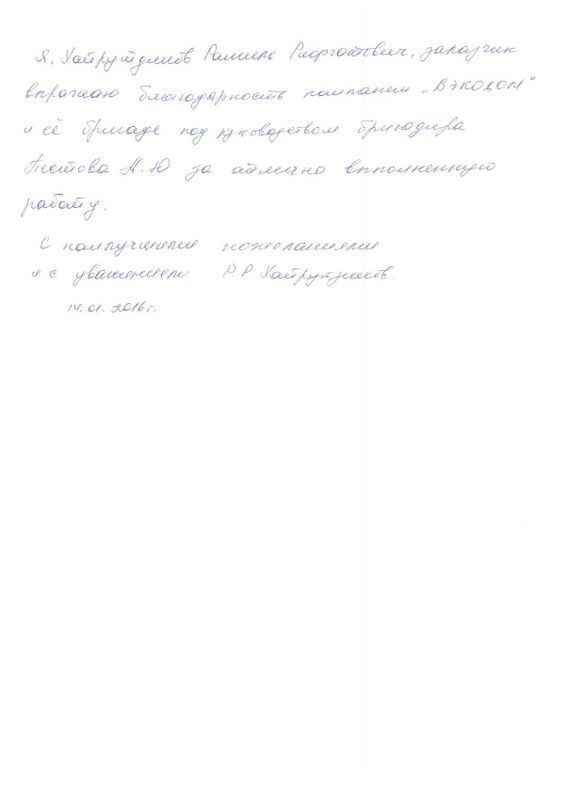 Я, Хайрутдинов Рамиль Ринатович, заказчик
выражаю благодарность компании „ВЭКОДОМ"
и её бригаде под руководством бригадира
Пестова А.Ю за отлично выполненную
работу.
С наилучшими пожеланиями
и с уважением Р.Р Хайрутдинов.
14.01.2016г.